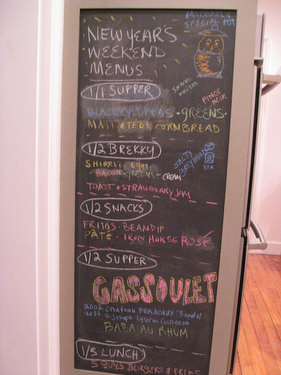 NEW YEAR'S
WEEKEND
MENUS
1/1 SUPPER
BLACKEYED PEAS • GREENS •
CORNBREAD
PINOT
NOIR
1/2 BREKKY
SHIRRED EGGS
BACON • GREENS • CREAM
TOAST & STRAWBERRY JAM
1/2 SNACKS
FRITOS • BEAN DIP
PÂTÉ • IRON HORSE ROSÉ
1/2 SUPPER
GASSOULET
2002 CHATEAU PRADEAUX Bandol
BABA AU RHUM
1/3 LUNCH
5 GUYS BURGERS & FRIES